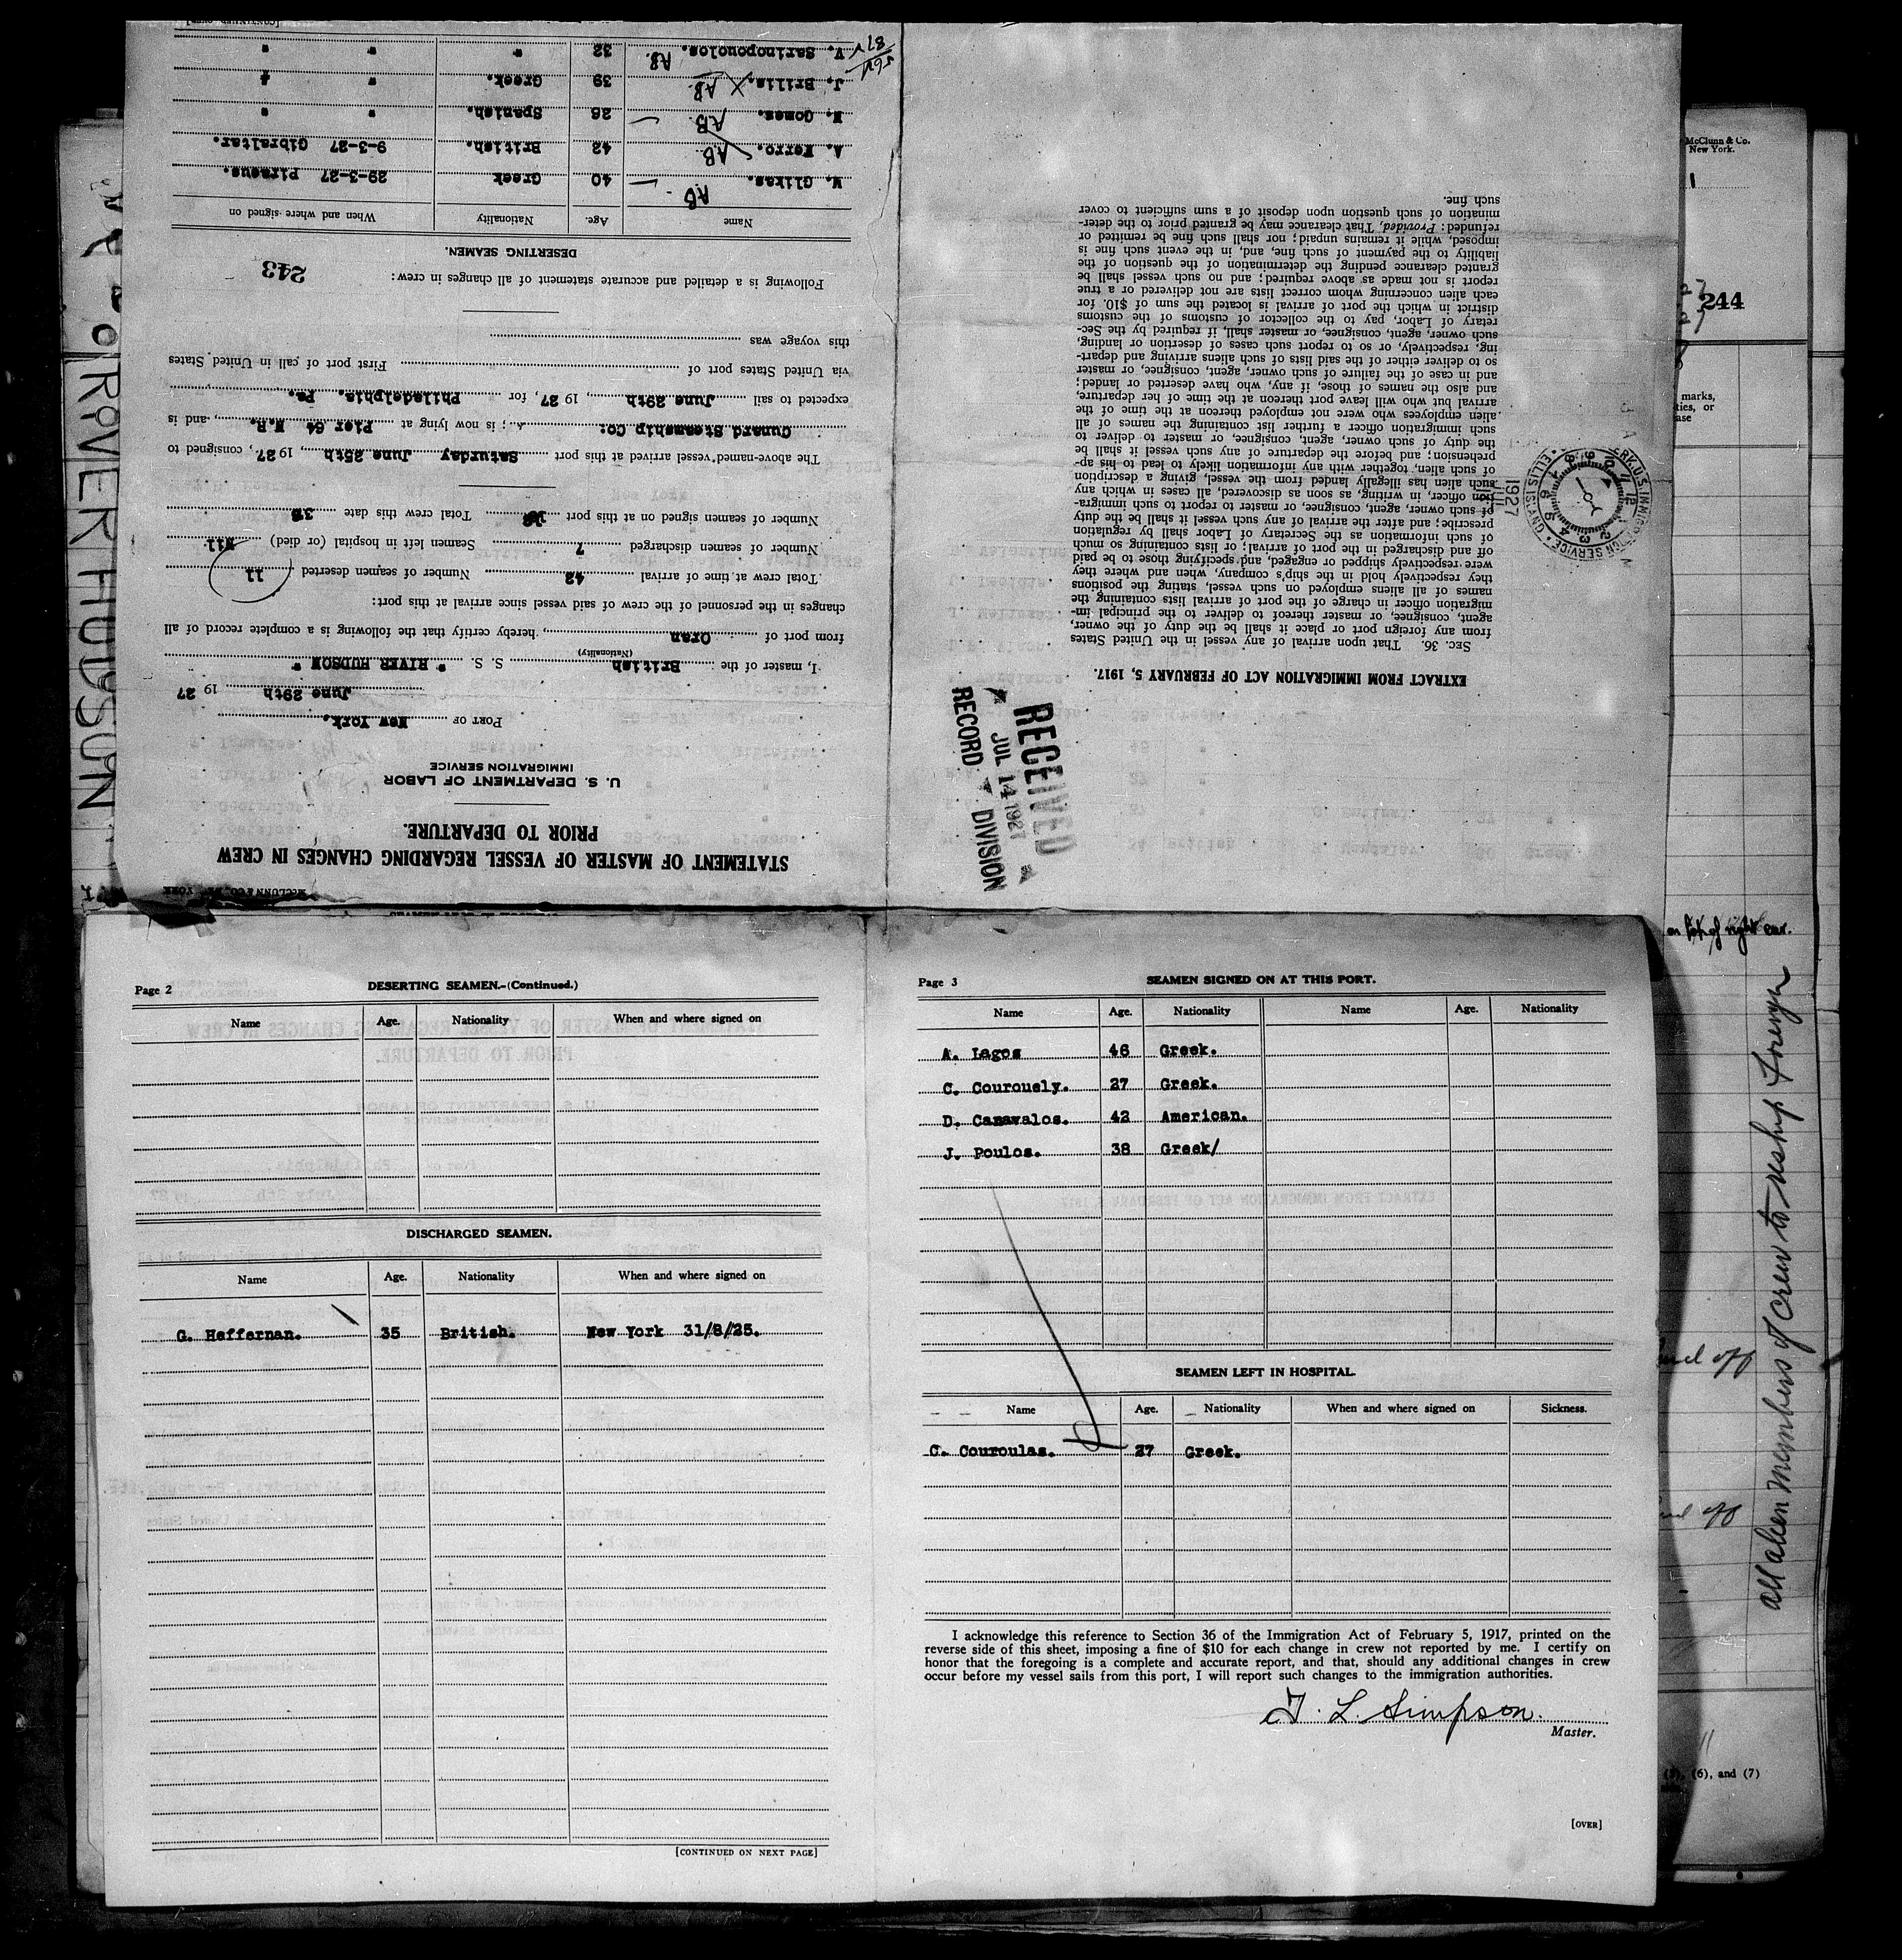 STATEMENT OF MASTER OF VESSEL REGARDING CHANGES IN CREW
PRIOR TO DEPARTURE.
U. S. DEPARTMENT OF LABOR
IMMIGRATION SERVICE
PORT OF New York.
June 29th 19 27
I, master of the British S. S. " RIVER HUDSON "
(Nationality)
from port of Oran, hereby certify that the following is a complete record of all
changes in the personnel of the crew of said vessel since arrival at this port:
Total crew at time of arrival 42 Number of seamen deserted 11
Number of seamen discharged 7 Seamen left in hospital (or died)
Number of seamen signed on at this port Total crew this date
The above-named vessel arrived at this port Saturday June 25th, 19 27, consigned to
Cunard Steamship Co: ; is now lying at Pier 64 N.R., and is
expected to sail June 29th, 19 27 for Philadelphia. Pa.
via United States port of First port of call in United States
this voyage was
Following is a detailed and accurate statement of all changes in crew:
243
DESERTING SEAMEN.
Name Age. Nationality When and where signed on
W. Glikas. AB 40 Greek 29-3-27 Piraeus.
A. Ferro. AB 42 British. 9-3-27 Gibraltar.
M. Gomes. AB 26 Spanish. " "
J. Brillis. X AB 39 Greek. " "
V. Sarinopoulos. AB 32 " " "
[CONTINUED
EXTRACT FROM IMMIGRATION ACT OF FEBRUARY 5, 1917.
SEC. 36. That upon arrival of any vessel in the United States
from any foreign port or place it shall be the duty of the owner,
agent, consignee, or master thereof to deliver to the principal im-
migration officer in charge of the port of arrival lists containing the
names of all aliens employed on such vessel, stating the positions
they respectively hold in the ship's company, when and where they
were respectively shipped or engaged, and specifying those to be paid
off and discharged in the port of arrival; or lists containing so much
of such information as the Secretary of Labor shall by regulation
prescribe; and after the arrival of any such vessel it shall be the duty
of such owner, agent, consignee, or master to report to such immigra-
tion officer, in writing, as soon as discovered, all cases in which any
such alien has illegally landed from the vessel, giving a description
of such alien, together with any information likely to lead to his ap-
prehension; and before the departure of any such vessel it shall be
the duty of such owner, agent, consignee, or master to deliver to
such immigration officer a further list containing the names of all
alien employees who were not employed thereon at the time of the
arrival but who will leave port thereon at the time of her departure,
and also the names of those, if any, who have deserted or landed;
and in case of the failure of such owner, agent, consignee, or master
so to deliver either of the said lists of such aliens arriving and depart-
ing, respectively, or so to report such cases of desertion or landing,
such owner, agent, consignee, or master shall, if required by the Sec-
retary of Labor, pay to the collector of customs of the customs
district in which the port of arrival is located the sum of $10. for
each alien concerning whom correct lists are not delivered or a true
report is not made as above required; and no such vessel shall be
granted clearance pending the determination of the question of the
liability to the payment of such fine, and, in the event such fine is
imposed, while it remains unpaid; nor shall such fine be remitted or
refunded: Provided, That clearance may be granted prior to the deter-
mination of such question upon deposit of a sum sufficient to cover
such fine.
RECEIVED
JUL 14 1927
RECORD DIVISION
1927
RIVER HUDSON
McClunn & Co.
New York.
244
marks,
ties, or
ase
on top of right ear.
all alien members of crew to reship foreign
(6), and (7)
Page 2 DESERTING SEAMEN.-(Continued.)
Name Age. Nationality When and where signed on
DISCHARGED SEAMEN.
Name Age. Nationality When and where signed on
G. Heffernan. 35 British. New York 31/8/25.
[CONTINUED ON NEXT PAGE]
Page 3 SEAMEN SIGNED ON AT THIS PORT.
Name Age. Nationality Name Age. Nationality
A. Lagos 46 Greek.
C. Courouely. 27 Greek.
D. Canavalos. 42 American.
J. Poulos. 38 Greek/
SEAMEN LEFT IN HOSPITAL.
Name Age. Nationality When and where signed on Sickness.
C. Couroulas. 27 Greek.
I acknowledge this reference to Section 36 of the Immigration Act of February 5, 1917, printed on the
reverse side of this sheet, imposing a fine of $10 for each change in crew not reported by me. I certify on
honor that the foregoing is a complete and accurate report, and that, should any additional changes in crew
occur before my vessel sails from this port, I will report such changes to the immigration authorities.
T. L. Simpson.
Master.
[OVER]